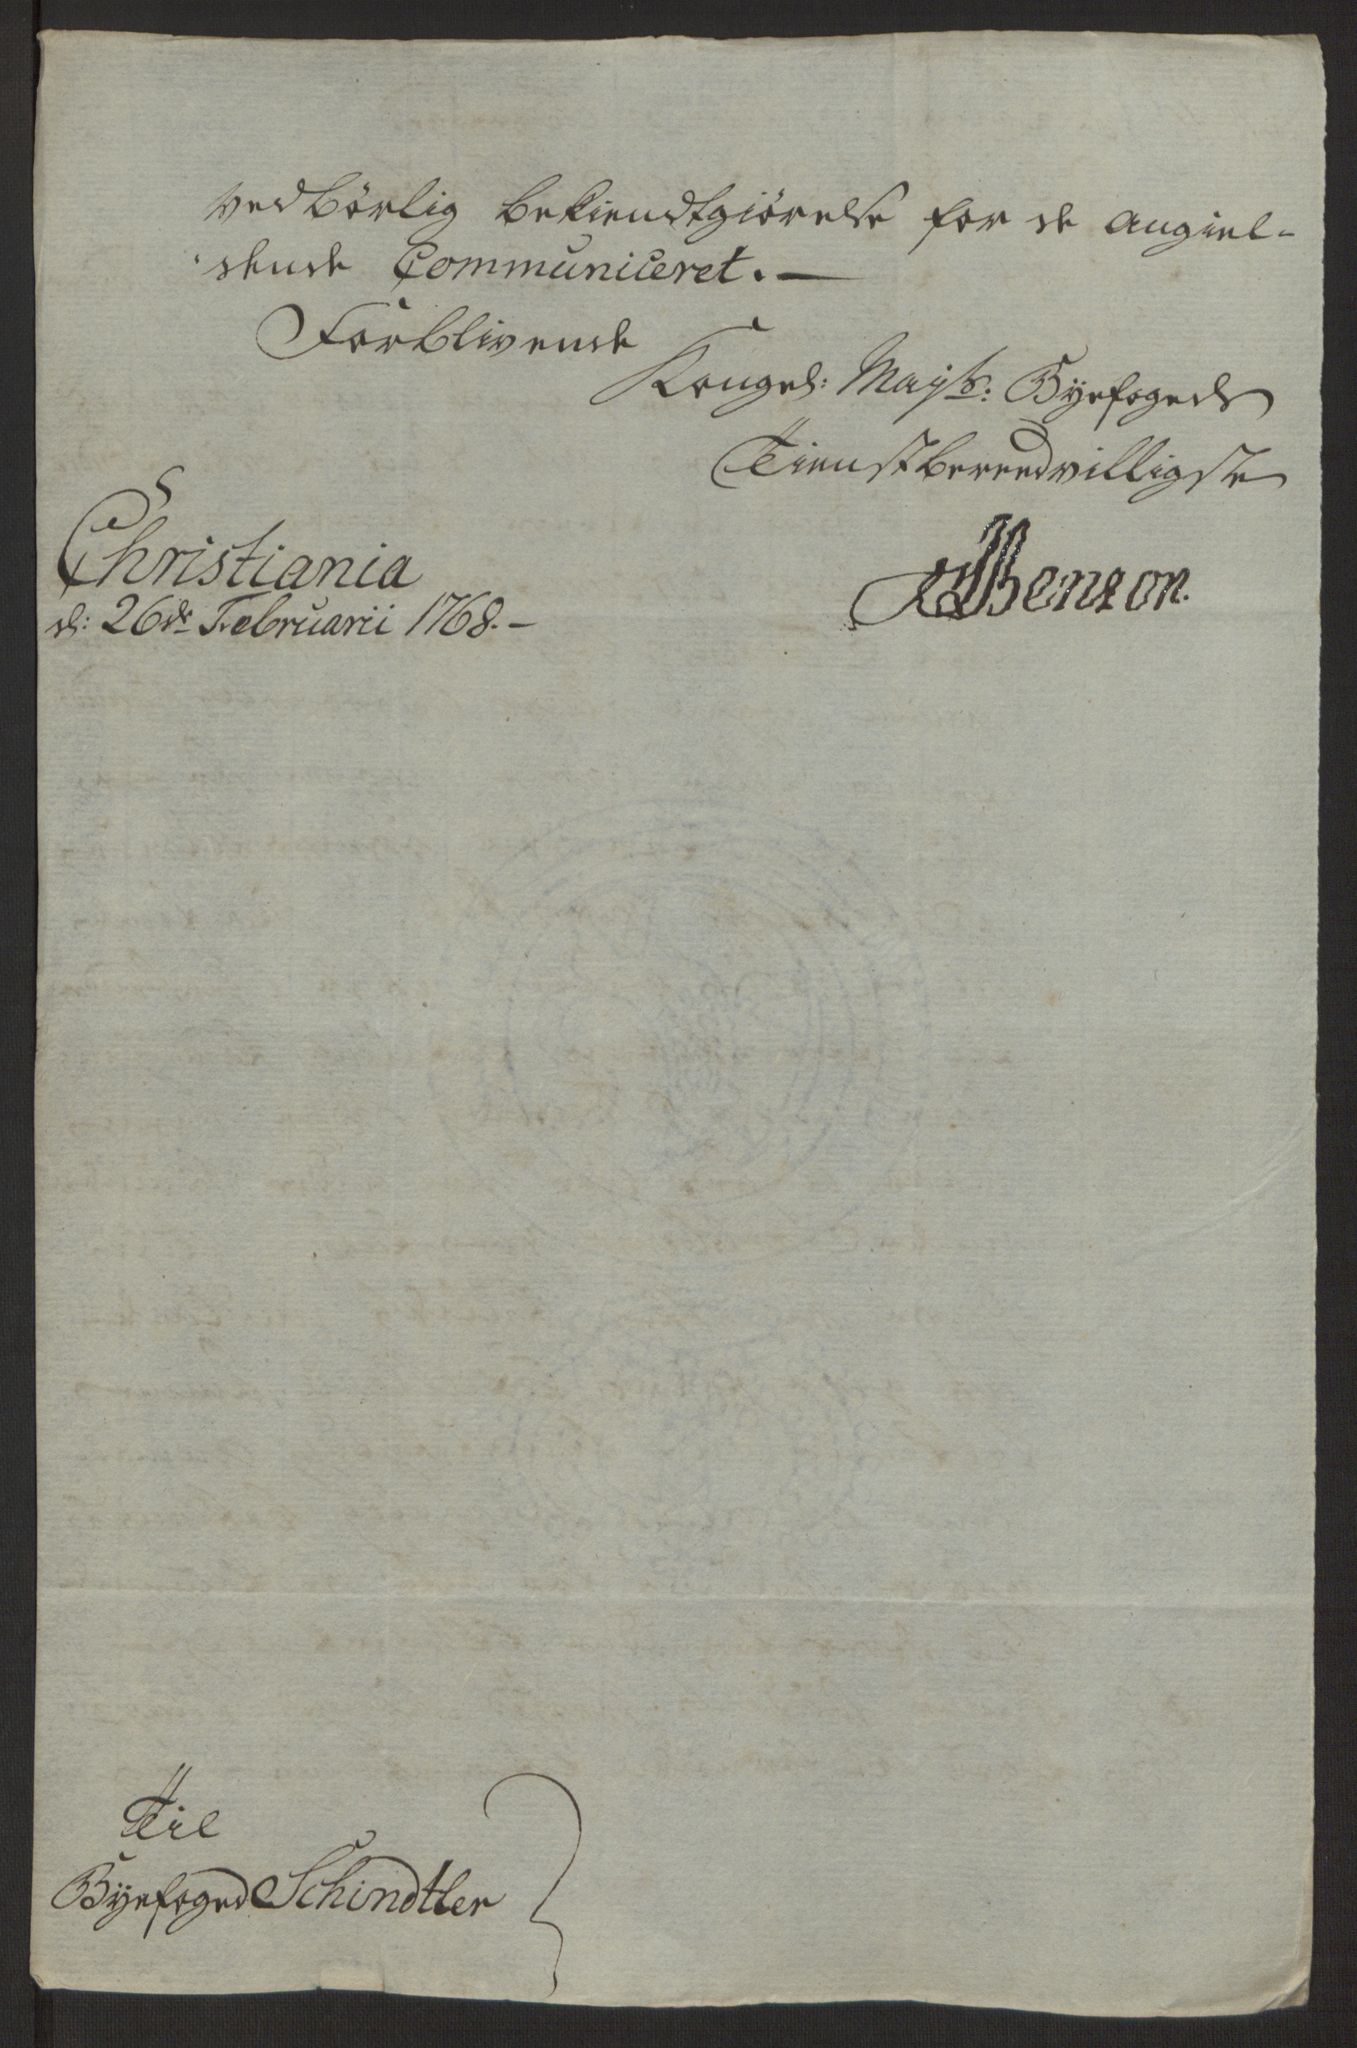 vedbörlig bekiendtgiörelse for de angiel-
dende Communiceret. —
Forblivende
Kongel: Mayts: Byefogeds
Tienstbereedvilligste
Christiania
d: 26de Februarii 1768. –
Benzon.
Til
Byefoged Schindtler